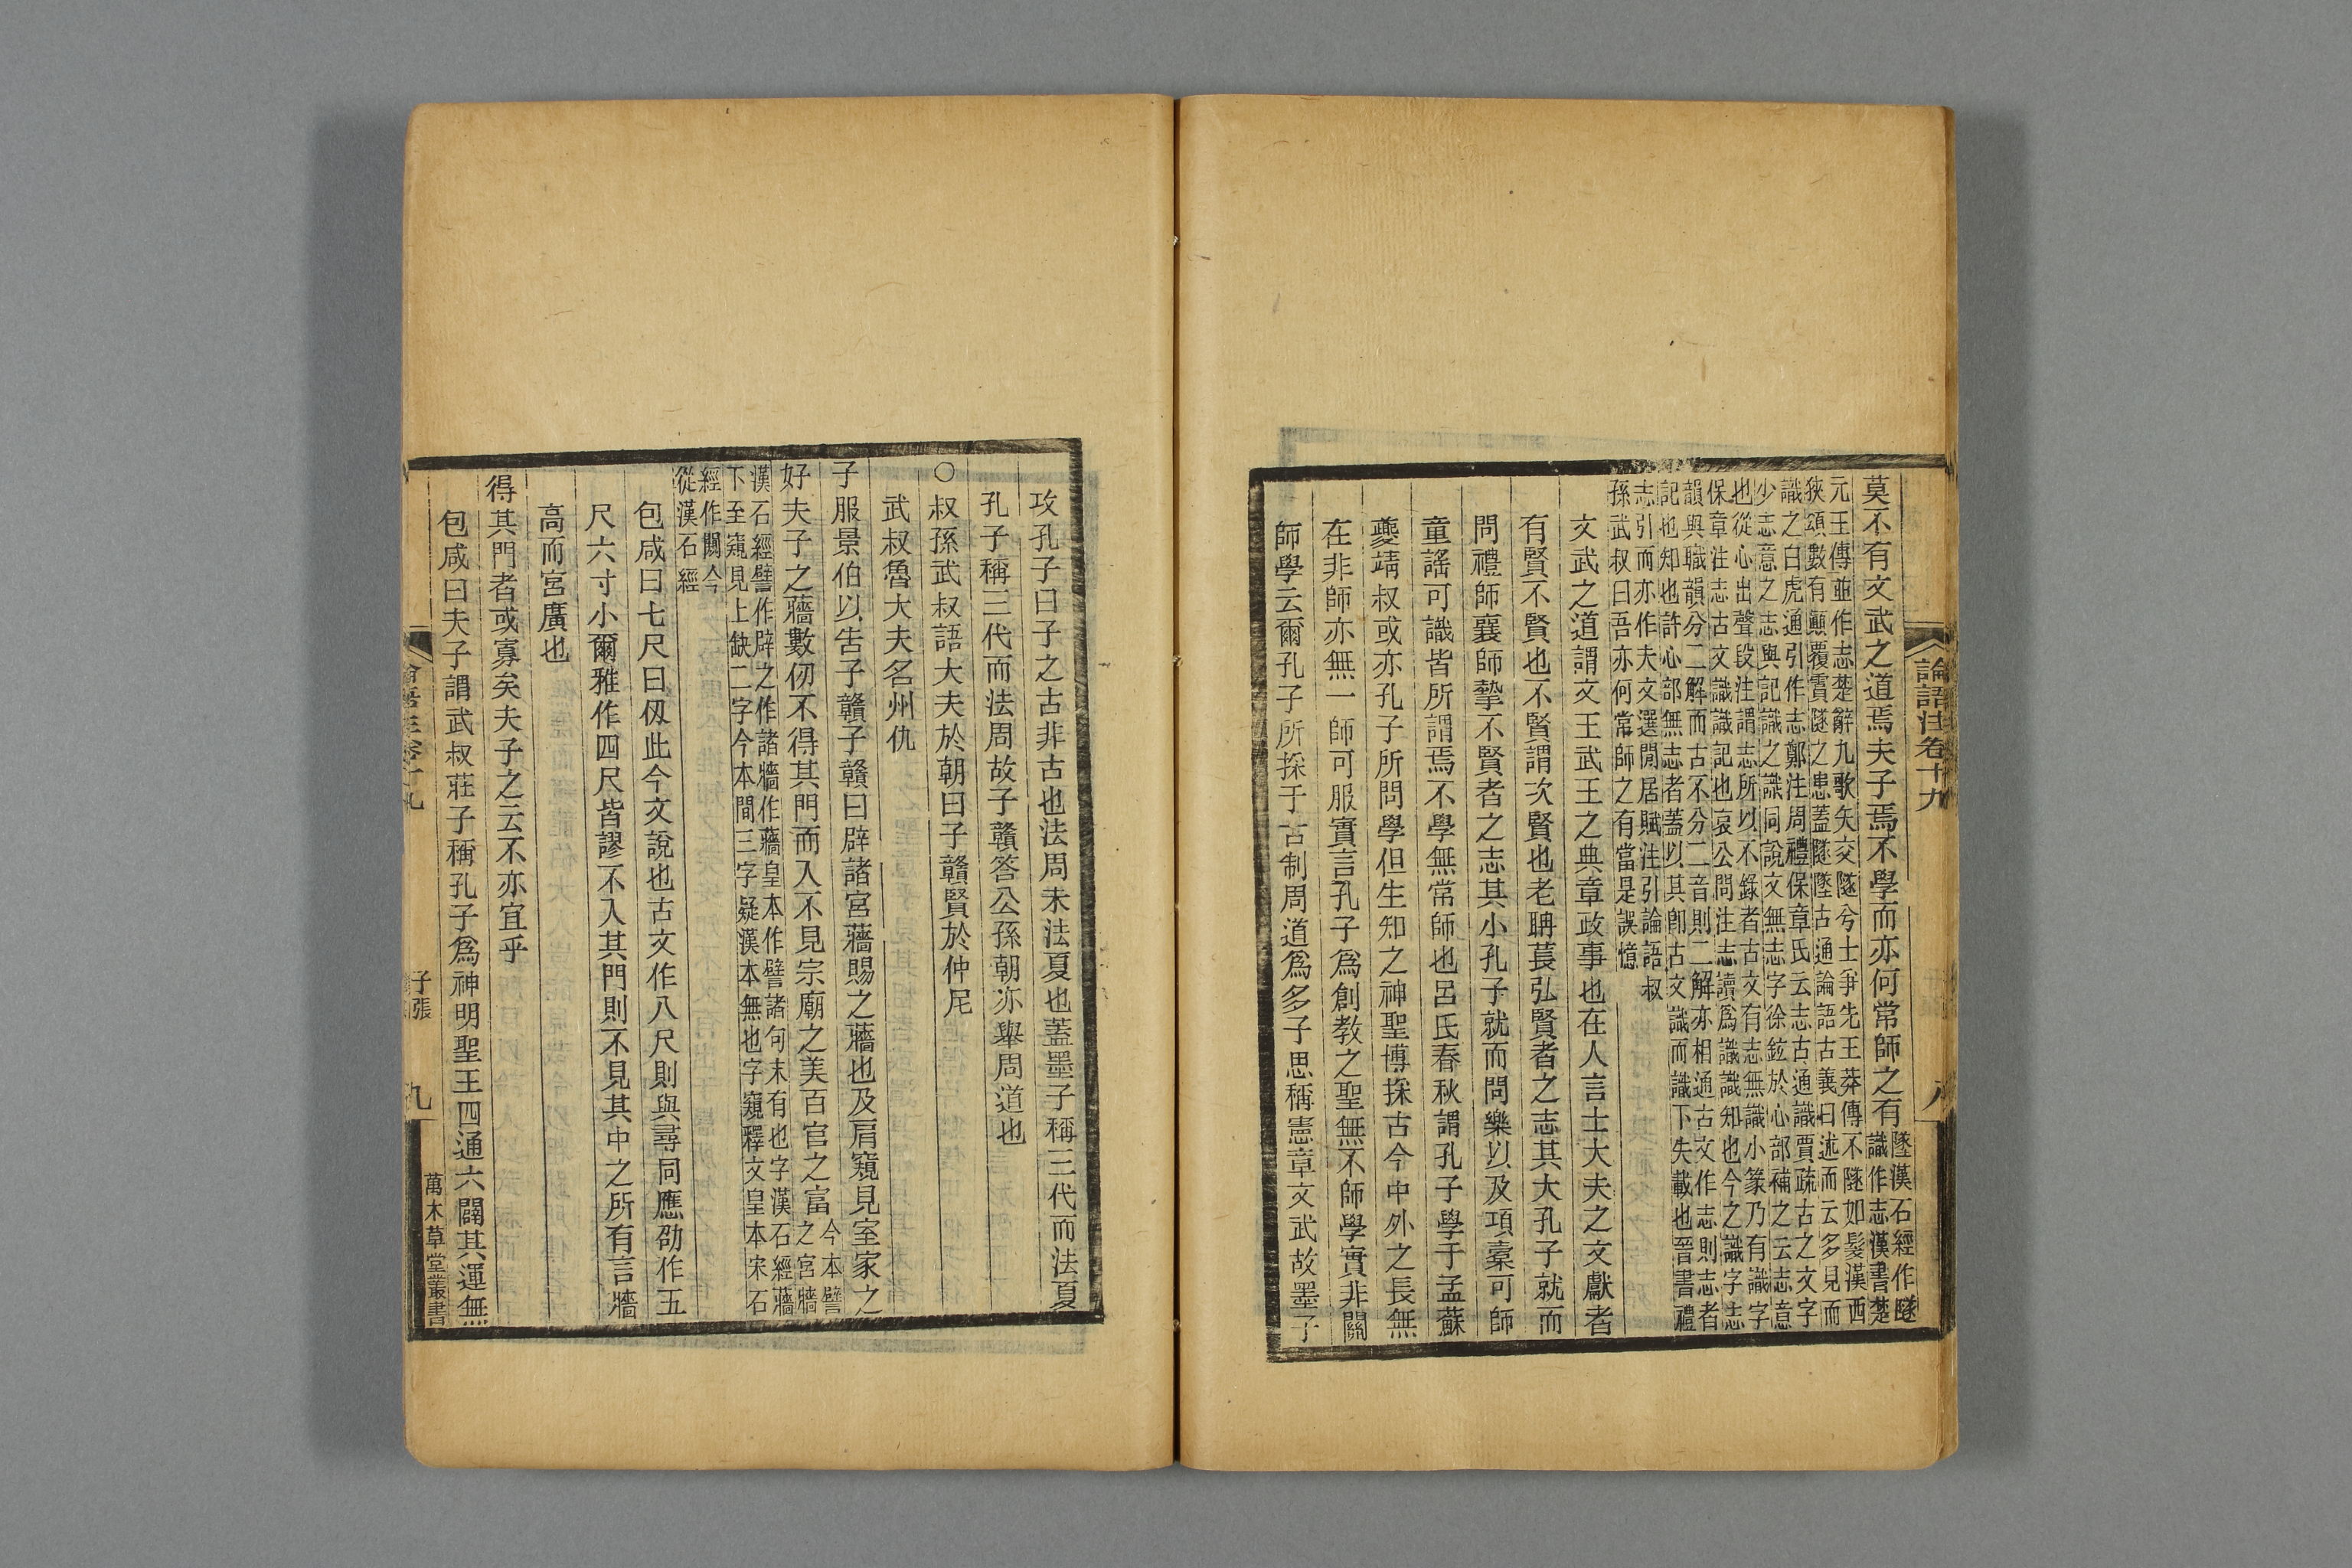 論語注卷十九
八
莫不有文武之道焉夫子焉不學而亦何常師之有
墜漢石經作隧
識作志漢書楚
元王傳並作志楚辭九歌矢交隧兮士爭先王莽傳不隧如髮漢西
狹頌數有顚覆霣隧之患蓋隧墜古通論語古義曰述而云多見而
識之白虎通引作志鄭注周禮保章氏云志古通識賈疏古之文字
少志意之志與記識之識同說文無志字徐鉉於心部補之云志意
也從心㞢聲段注謂志所以不錄者古文有志無識小篆乃有識字
保章注志古文識識記也哀公問注志讀爲識識知也今之識字志
韻與職韻分二解而古不分二音則二解亦相通古文作志則志者
記也知也許心部無志者蓋以其卽古文識而識下失載也晉書禮
志引而亦作夫文選閒居賦注引論語叔
孫武叔曰吾亦何常師之有當是誤憶
文武之道謂文王武王之典章政事也在人言士大夫之文獻者
有賢不賢也不賢謂次賢也老聃萇弘賢者之志其大孔子就而
問禮師襄師摯不賢者之志其小孔子就而問樂以及項橐可師
童謠可識皆所謂焉不學無常師也呂氏春秋謂孔子學于孟蘇
夔靖叔或亦孔子所問學但生知之神聖博採古今中外之長無
在非師亦無一師可服實言孔子爲創教之聖無不師學實非關
師學云爾孔子所採于古制周道爲多子思稱憲章文武故墨子
攻孔子曰子之古非古也法周未法夏也蓋墨子稱三代而法夏
孔子稱三代而法周故子贛答公孫朝亦舉周道也
〇叔孫武叔語大夫於朝曰子贛賢於仲尼
武叔魯大夫名州仇
子服景伯以告子贛子贛曰辟諸宮牆賜之牆也及肩窺見室家之
好夫子之牆數仞不得其門而入不見宗廟之美百官之富
今本譬
之宮牆
漢石經譬作辟之作諸牆作牆皇本作譬諸句末有也字漢石經牆
下至窺見上缺二字今本間三字疑漢本無也字窺釋文皇本宋石
經作闚今
從漢石經
包咸曰七尺曰仞此今文說也古文作八尺則與尋同應劭作五
尺六寸小爾雅作四尺皆謬不入其門則不見其中之所有言牆
高而宮廣也
得其門者或寡矣夫子之云不亦宜乎
包咸曰夫子謂武叔莊子稱孔子爲神明聖王四通六闢其運無
子張
九
萬木草堂叢書